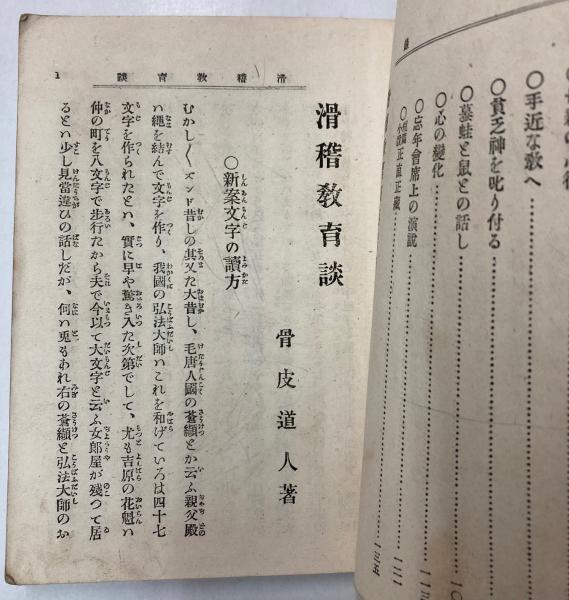 ○手近な敎へ
○貧乏神を叱り付る
○蟇蛙と鼠との話し
○心の變化
○忘年會席上の演說
正直正藏
一三五
滑稽敎育談
1
滑稽敎育談
骨皮道人著
○新案文字の讀方
むかし〱ズンド昔しの其又た大昔し、毛唐人國の蒼頡とか云ふ親父殿
ハ繩を結んで文字を作り、我國の弘法大師ハこれを和げていろは四十七
文字を作られたとハ、實に早や驚き入た次第でして、尤も吉原の花魁ハ
仲の町を八文字で步行たから夫で今以て大文字と云ふ女郎屋が殘つて居
るとハ少し見當違ひの話しだが、何ハ兎もあれ右の蒼頡と弘法大師のお